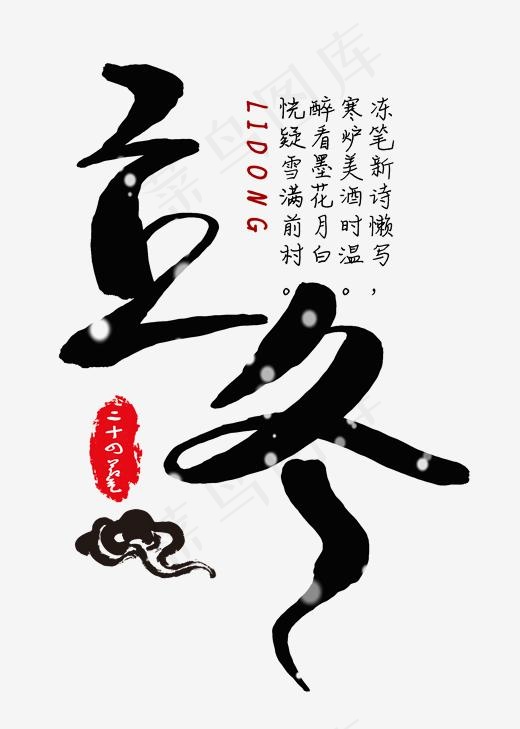 立冬
LIDONG
冻笔新诗懒写，
寒炉美酒时温。
醉看墨花月白
恍疑雪满前村。
二十四节气
菜鸟图库